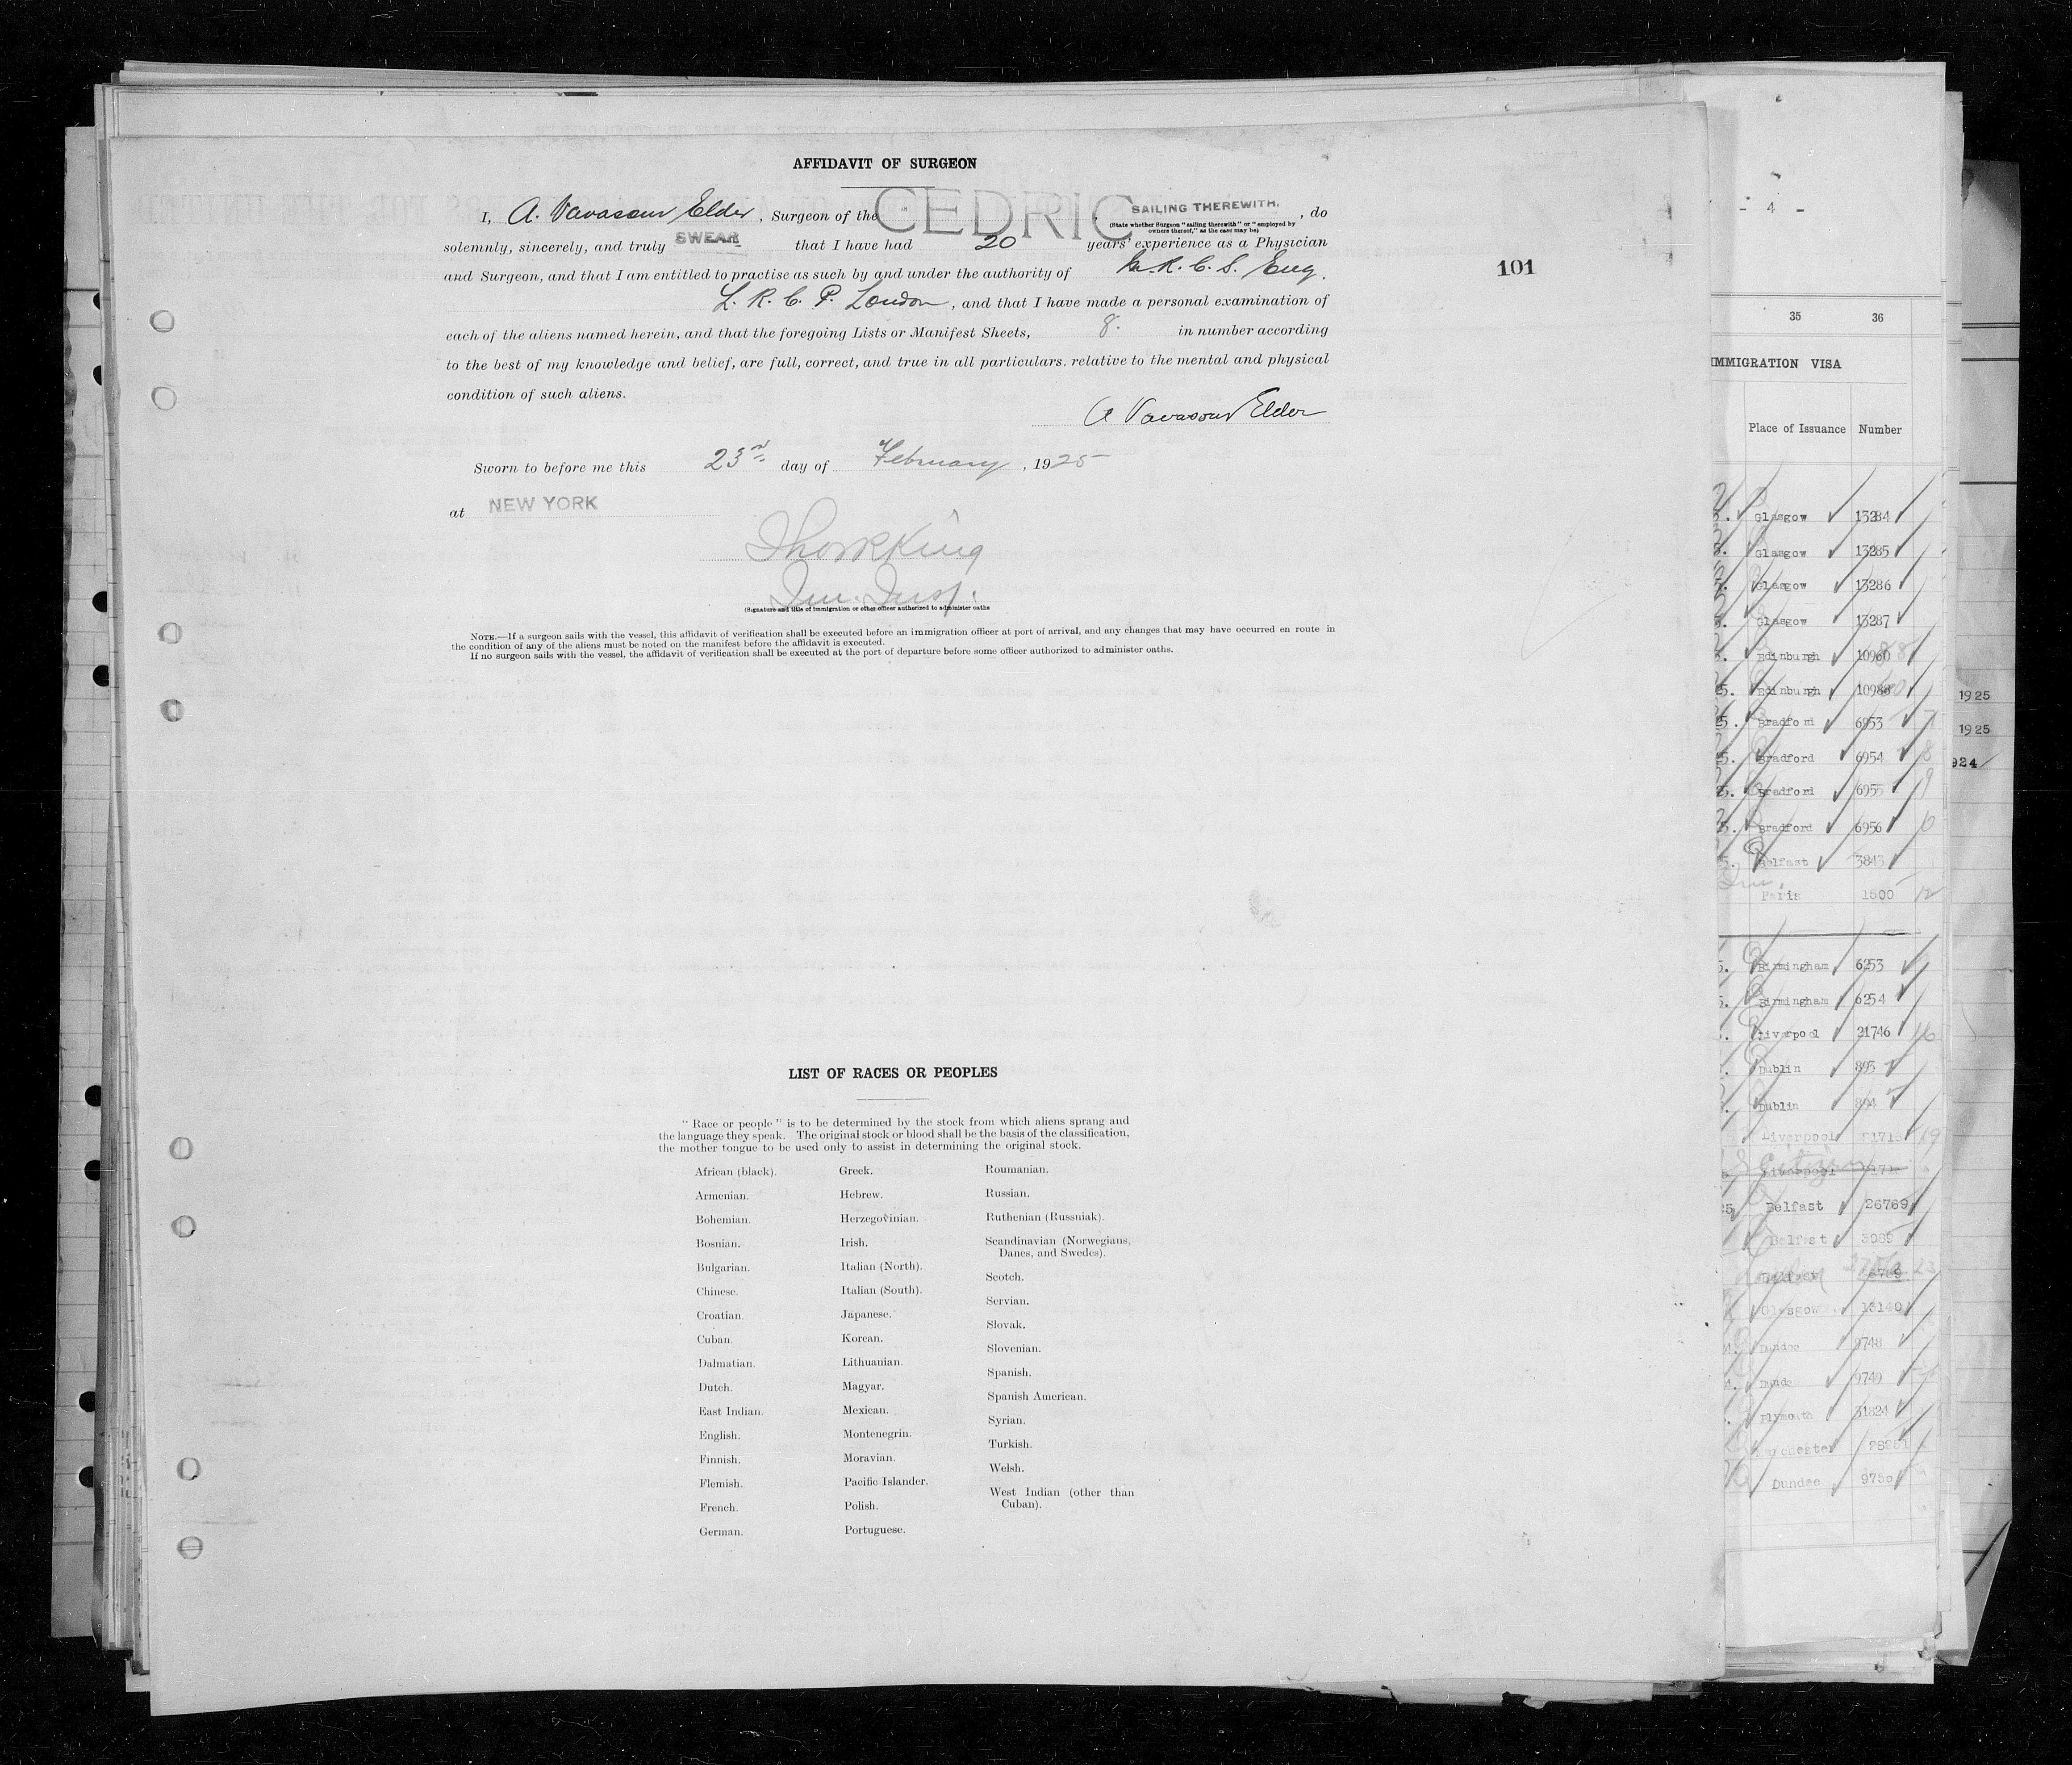 AFFIDAVIT OF SURGEON
I, A. Vavasour Elder, Surgeon of the CEDRIC, SAILING THEREWITH., do
(State whether Surgeon "sailing therewith" or "employed by
owners thereof," as the case may be)
solemnly, sincerely, and truly SWEAR that I have had 20 years' experience as a Physician
and Surgeon, and that I am entitled to practise as such by and under the authority of M.R.C.S. Eng.
L.R.C.P. London, and that I have made a personal examination of
each of the aliens named herein, and that the foregoing Lists or Manifest Sheets, 8. in number according
to the best of my knowledge and belief, are full, correct, and true in all particulars. relative to the mental and physical
condition of such aliens.
A Vavasour Elder
Sworn to before me this 23rd day of February, 1925
at NEW YORK
King
Im. Insp.
(Signature and title of immigration or other officer authorized to administer oaths
NOTE.—If a surgeon sails with the vessel, this affidavit of verification shall be executed before an immigration officer at port of arrival, and any changes that may have occurred en route in
the condition of any of the aliens must be noted on the manifest before the affidavit is executed.
If no surgeon sails with the vessel, the affidavit of verification shall be executed at the port of departure before some officer authorized to administer oaths.
101
LIST OF RACES OR PEOPLES
"Race or people" is to be determined by the stock from which aliens sprang and
the language they speak. The original stock or blood shall be the basis of the classification,
the mother tongue to be used only to assist in determining the original stock.
African (black).
Armenian.
Bohemian.
Bosnian.
Bulgarian.
Chinese.
Croatian.
Cuban.
Dalmatian.
Dutch.
East Indian.
English.
Finnish.
Flemish.
French.
German.
Greek.
Hebrew.
Herzegovinian.
Irish.
Italian (North).
Italian (South).
Japanese.
Korean.
Lithuanian.
Magyar.
Mexican.
Montenegrin.
Moravian.
Pacific Islander.
Polish.
Portuguese.
Roumanian.
Russian.
Ruthenian (Russniak).
Scandinavian (Norwegians,
Danes, and Swedes).
Scotch.
Servian.
Slovak.
Slovenian.
Spanish.
Spanish American.
Syrian.
Turkish.
Welsh.
West Indian (other than
Cuban).
- 4 -
35 36
IMMIGRATION VISA
Place of Issuance Number
Glasgow 13284
Glasgow 13285
Glasgow 13286
Glasgow 13287
Edinburgh 10960
Edinburgh 10988
Bradford 6953
Bradford 6954 8
Bradford 6955 9
Bradford 6956
Belfast 3843
Paris 1500 12
Birmingham 6253
Birmingham 6254
Liverpool 21746 16
Dublin 893
Dublin 894
Liverpool 19
Liverpool
Belfast 26769
Belfast 3089
23
Glasgow 13140
Dundee 9748
9749
Plymouth 31824
Dundee 9750
1925
1925
924